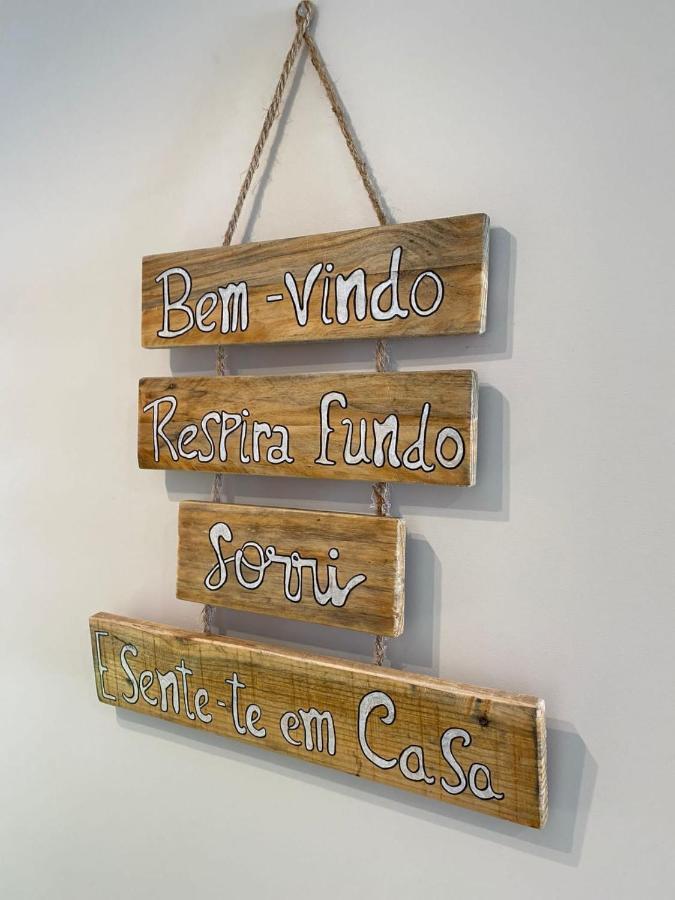 Bem-vindo
Respira fundo
Sorri
E Sente-te em Casa